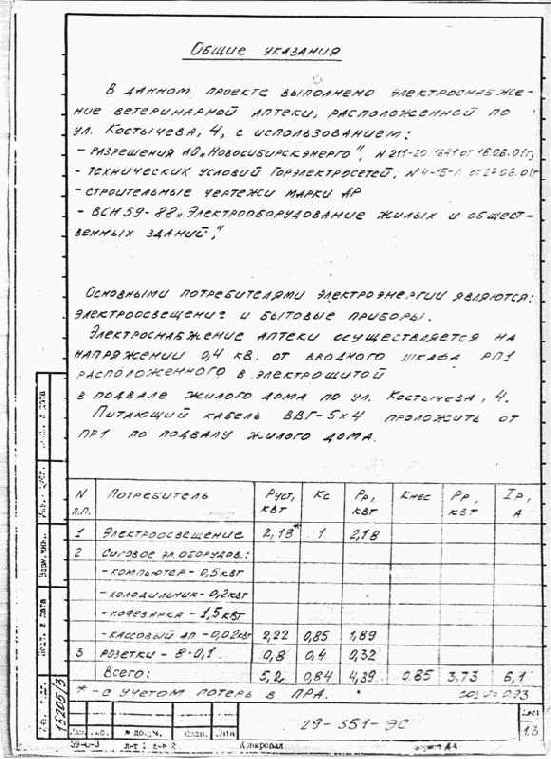 Общие указания
В данном проекте выполнено электроснабже-
ние ветеринарной аптеки, расположенной по
ул. Костычева, 4, с использованием:
- разрешения АО "Новосибирскэнерго", N
- технических условий Горэлектросетей, N
- строительные чертежи марки АР
- ВСН 59-88 "Электрооборудование жилых и общест-
венных зданий"
Основными потребителями электроэнергии являются:
электроосвещение и бытовые приборы.
Электроснабжение аптеки осуществляется на
напряжении 0,4 кВ. от вводного шкафа
расположенного в электрощитой
в подвале жилого дома по ул. Костычева, 4.
Питающий кабель ВВГ-5х4 проложить от
ПР1 по подвалу жилого дома.
N п.п. Потребитель Руст, кВт Кс Рр, кВт Кнес Рр, кВт Iр, А
1 Электроосвещение 2,18* 1 2,18
2 Силовое эл. оборудов.:
- компьютер - 0,5 кВт
- холодильник - 0,2 кВт
- кофеварка - 1,5 кВт
- кассовый ап - 0,02 кВт 2,22 0,85 1,89
3 розетки - 8·0,1 0,8 0,4 0,32
Всего: 5,2 0,84 4,39 0.85 3,73 6,1
* - с учетом потерь в ПРА. 0.93
15205/3
29-551-ЭС
Лист
13
N докум. Дата
Копировал